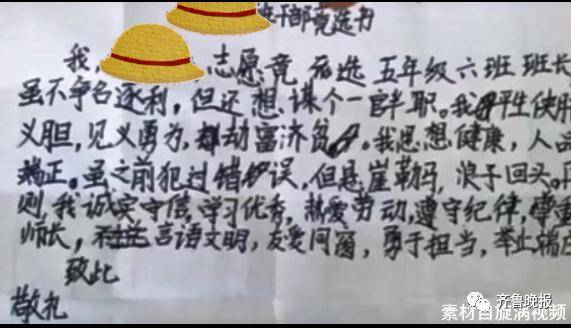 干部竞选书
我, 志愿竞选五年级六班班长
虽不争名逐利，但还想谋个一官半职。我平生侠肝
义胆，见义勇为，劫富济贫。我思想健康，人品
端正。虽之前犯过错误，但悬崖勒马，浪子回头。
则，我诚实守信，学习优秀，热爱劳动，遵守纪律，尊重
师长，言语文明，友爱同窗，勇于担当，举止端庄
致此
敬礼
齐鲁晚报
素材自旋涡视频